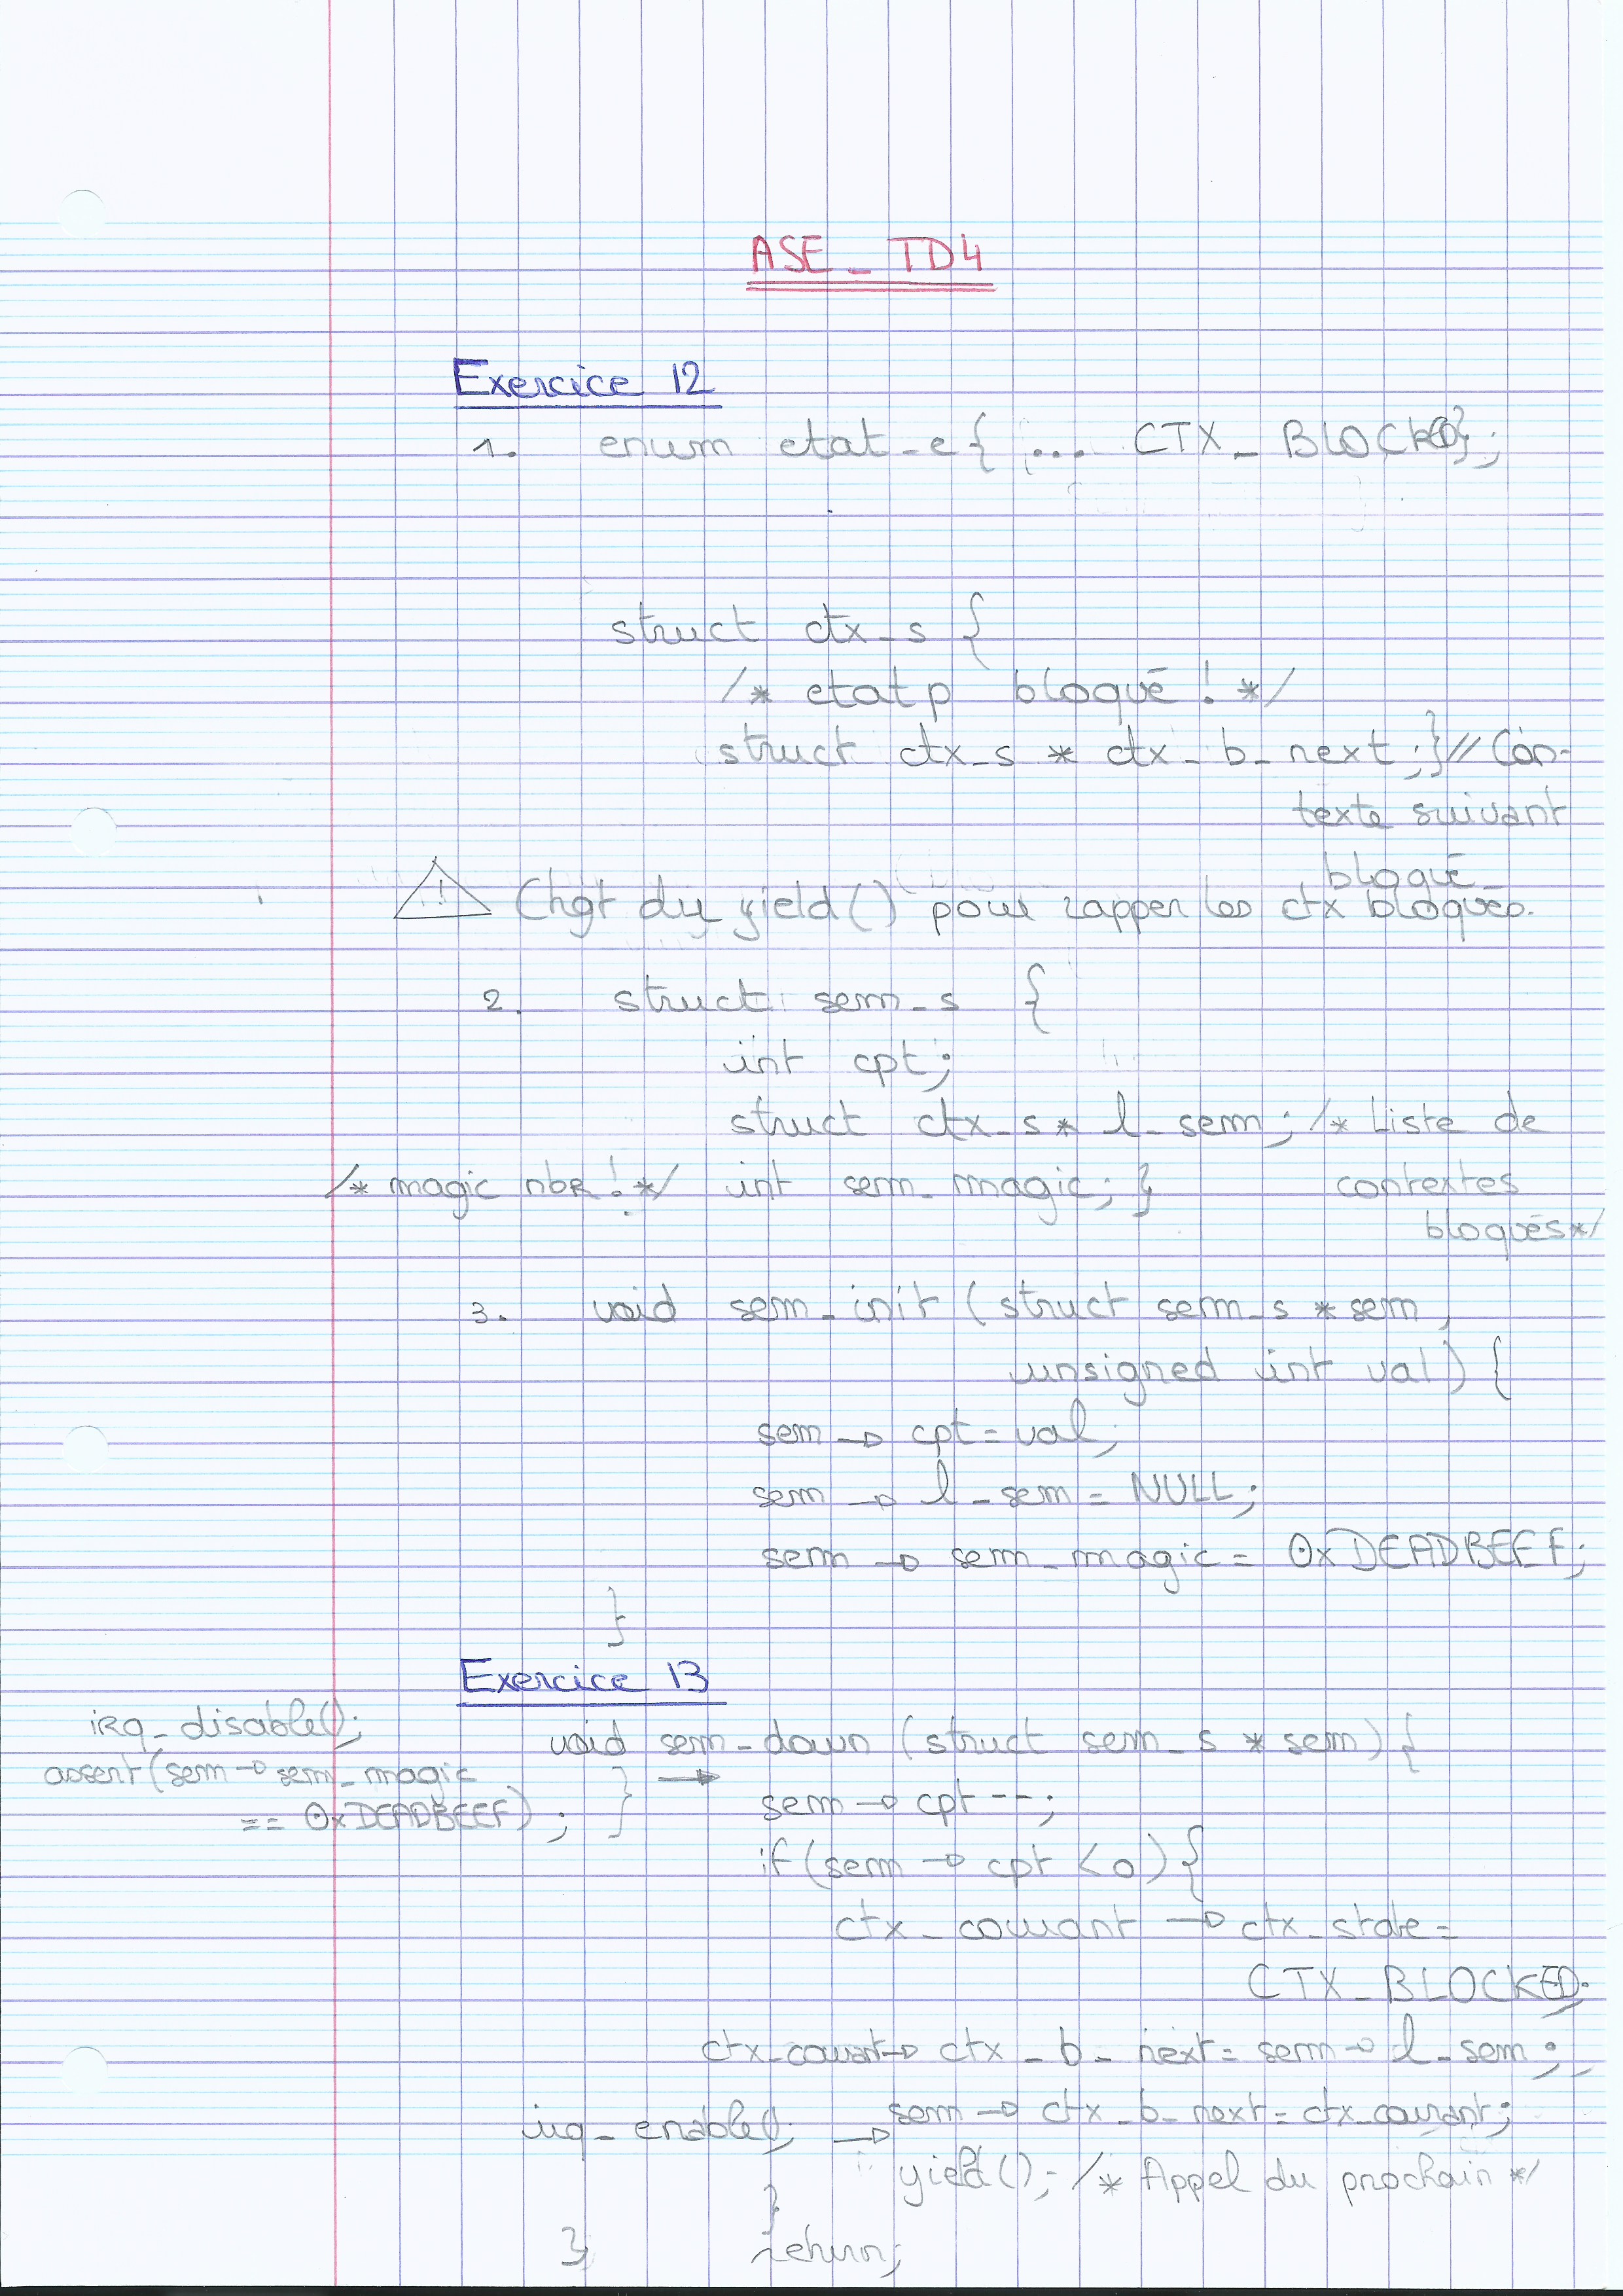 ASE_TD4
Exercice 12
1. enum etat_e{ ... CTX_BLOCKED};
struct ctx_s {
/* etatp bloqué ! */
struct ctx_s * ctx_b_next ;} // Con-
texte suivant
bloqué_
⚠ Chgt du yield() pour zapper les ctx bloqués.
2. struct sem_s {
int cpt;
struct ctx_s * l_sem ; /* Liste de
/* magic nbr ! */ int sem_magic; } contextes
bloqués */
3. void sem_init (struct sem_s * sem,
unsigned int val) {
sem -> cpt = val;
sem -> l_sem = NULL;
sem -> sem_magic = 0xDEADBEEF;
}
Exercice 13
irq_disable();
void sem_down (struct sem_s * sem) {
assert(sem -> sem_magic
== 0xDEADBEEF) ; } → sem -> cpt --;
if (sem -> cpt < 0) {
ctx_courant -> ctx_state =
CTX_BLOCKED;
ctx_courant -> ctx_b_next = sem -> l_sem ;
sem -> ctx_b_next = ctx_courant;
irq_enable(); →
yield(); /* Appel du prochain */
}
} return;